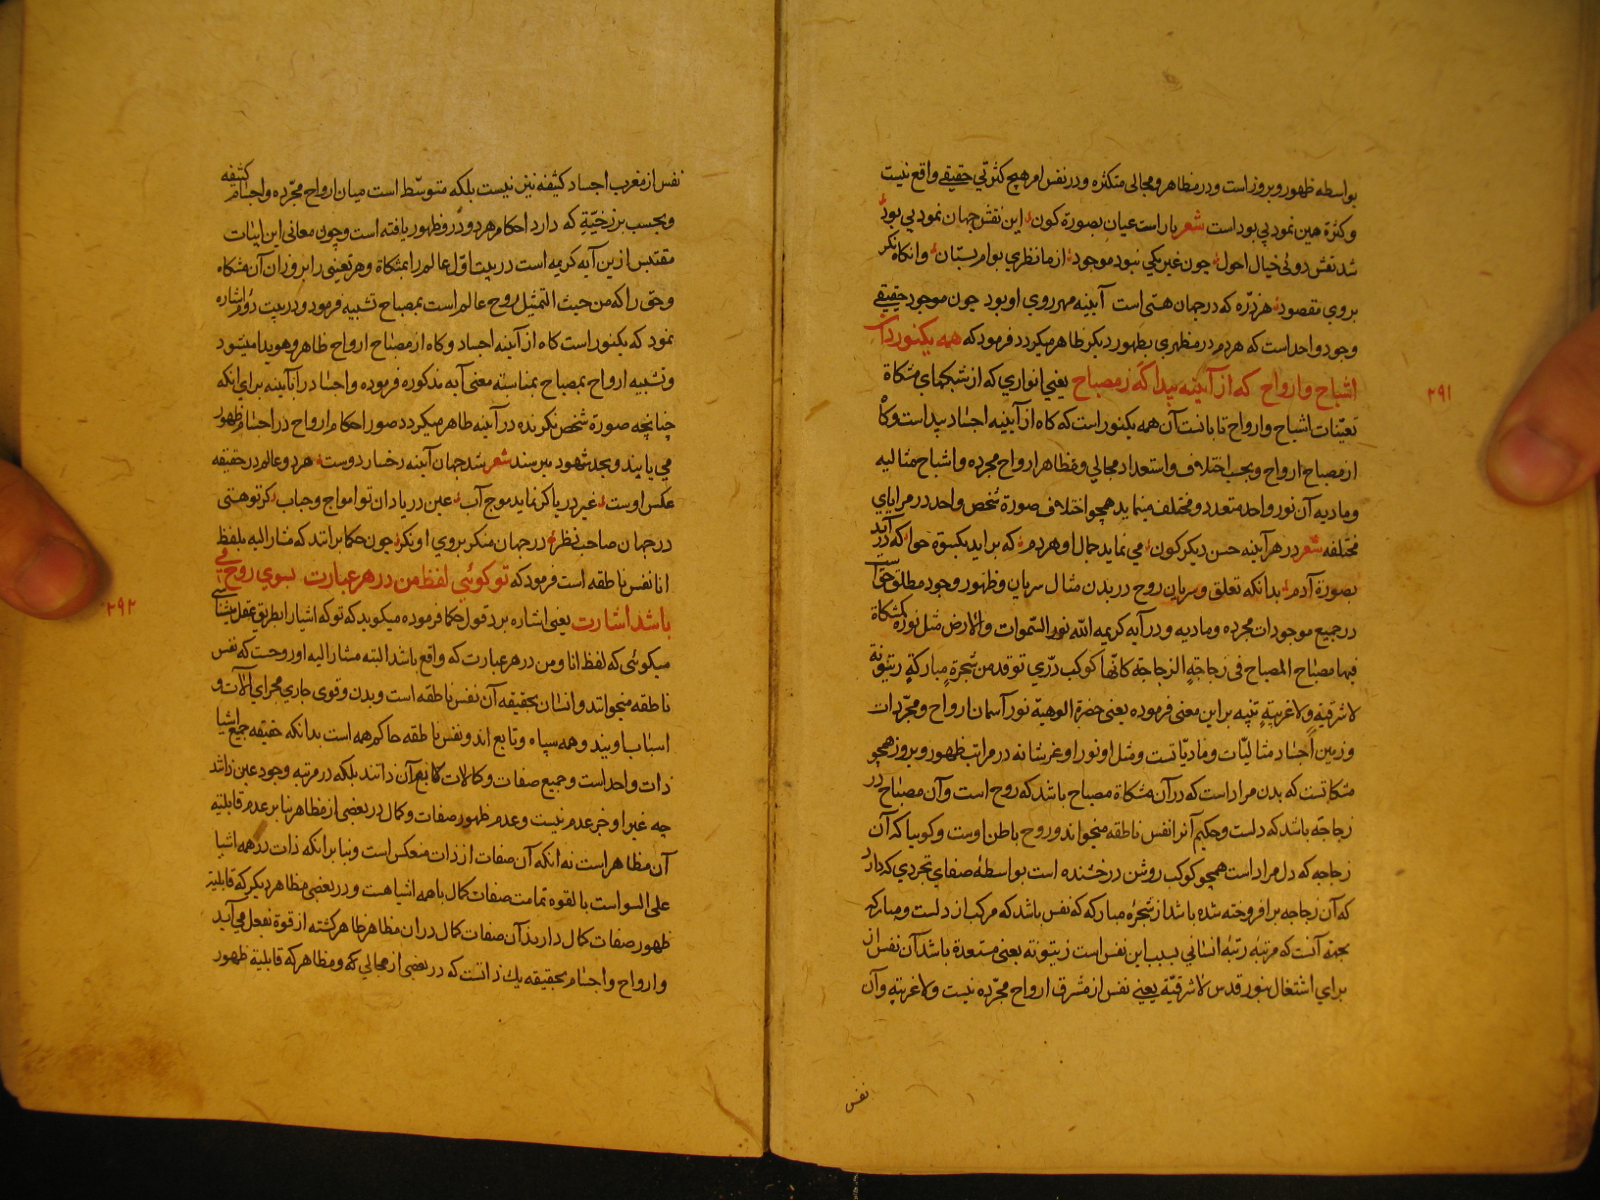 بواسطه ظهور و بروز است و در مظاهر و مجالی متکثره و در نفس امر هیچ کثرتی حقیقے واقع نیست
و کثرة همین نمود بی بود است شعر یار است عیان بصورة کون این نقش جهان نمود بی بود
شد نقش دوئی خیال احول چون غیر یکی نبود موجود از ما نظری بوام بستان وانگاه نکر
بروی مقصود هر ذره که در جهان هستی است آیینه مهر روی او بود چون موجود حقیقے
وجود واحد است که هر دم در مظهری بظهور دیکر ظاهر میکردد فرمود که همه یکنور دان
اشباح و ارواح که از آیینه پیدا که ز مصباح یعنی انواری که از شبکهای مشکاة
تعینات اشباح و ارواح تابانست آن همه یکنور است که کاه از آیینه اجساد پیداست و کاه
از مصباح ارواح و بحسب اختلاف و استعداد مجالی و مظاهر ارواح مجرده و اشباح مثالیه
و مادیه آن نور واحد متعدد و مختلف مینماید همچو اختلاف صورة شخص واحد در مرایای
مختلفه شعر در هر آینه حسن دیکر کون می نماید جمال او هر دم که برآید بکسوة حوا که درآید
بصورة آدم بدانکه تعلق و سریان روح در بدن مثال سریان و ظهور وجود مطلق حق است
در جمیع موجودات مجرده و مادیه و در آیه کریمه الله نور السموات والارض مثل نوره کمشکاة
فیها مصباح المصباح فی زجاجة الزجاجة کانها کوکب دری توقد من شجرة مبارکة زیتونة
لا شرقیة ولا غربیة تنبیه بر این معنی فرموده یعنی حضرة الوهیة نور آسمان ارواح و مجردات
و زمین اجساد مثالیات و مادیاتست و مثل او نور او عز شانه در مراتب ظهور و بروز همچو
مشکاتست که بدن مراد است که در آن مشکاة مصباح باشد که روح است و آن مصباح در
زجاجه باشد که دلست و حکیم آنرا نفس ناطقه میخواند و روح باطن اوست و کوییا که آن
زجاجه که دل مراد است همچو کوکب روشن درخشنده است بواسطهٔ صفای تجردی که دارد
که آن زجاجه برافروخته شده باشد از شجرهٔ مبارکه که نفس باشد که مرکب از دلست و مبارکه
بجهة آنست که مرتبه رتبهٔ انسانی بسبب این نفس است زیتونة یعنی مستعدة باشد آن نفس از
برای اشتغال بنور قدس لا شرقیّة یعنی نفس از مشرق ارواح مجرده نیست ولا غربیّة و آن
نفس
۲۹۱
نفس از مغرب اجساد کثیفه نیز نیست بلکه متوسط است میان ارواح مجرده و اجسام کثیفه
و بحسب برزخیّة که دارد احکام هر دو در و ظهور یافته است و چون معانی این ابیات
مقتبس ازین آیه کریمه است در بیت اول عالم را بمشکاة و هر تعینی را بروزن آن مشکاه
و حق را که من حیث التمثیل روح عالم است بمصباح تشبیه فرمود و در بیت دوم اشاره
نمود که یکنور است کاه از آیینه اجساد و کاه از مصباح ارواح ظاهر و هویدا میشود
و تشبیه ارواح بمصباح بمناسبة معنی آیه مذکوره فرموده و اجساد را بآیینه برای آنکه
چنانچه صورة شخص نکرنده در آینه ظاهر میکردد صور احکام ارواح در اجسام ظهور
می یابند و بحد شهود میرسند شعر شد جهان آینه رخسار دوست هر دو عالم در حقیقه
عکس اوست غیر دریا کر نماید موج آب عین دریا دان تو امواج و حباب کر تو هستی
در جهان صاحب نظر در جهان منکر بروی او نکر چون حکما برانند که مشار الیه بلفظ
انا نفس ناطقه است فرمود که تو کوئی لفظ من در هر عبارت بسوی روح می
باشد اشارت یعنی اشاره برد قول حکما فرموده میکوید که تو که اشیا را بطریق عقل میشناسی
میکوئی که لفظ انا و من در هر عبارت که واقع باشد البته مشار الیه او روحست که نفس
ناطقه میخوانند و انسان بحقیقه آن نفس ناطقه است و بدن و قوی جاری مجرای آلات و
اسباب اویند و همه سپاه و تابع اند و نفس ناطقه حاکم همه است بدانکه حقیقه جمیع اشیا
ذات واحد است و جمیع صفات و کمالات تابع آن ذاتند بلکه در مرتبه وجود عین ذاتند
چه غیر او جز عدم نیست و عدم ظهور صفات و کمال در بعضی از مظاهر بنابر عدم قابلیّه
آن مظاهر است نه آنکه آن صفات از ذات منعکس است و بنا برانکه ذات در همه اشیا
علی السواست بالقوه تمامت صفات کمال با همه اشیا هست و در بعضی مظاهر دیکر که قابلیة
ظهور صفات کمال دارند آن صفات کمال در ان مظاهر ظاهر کشته از قوة بفعل می آید
و ارواح و اجسام بحقیقه یک ذاتست که در بعضی از مجالی که و مظاهر که قابلیة ظهور
۲۹۲